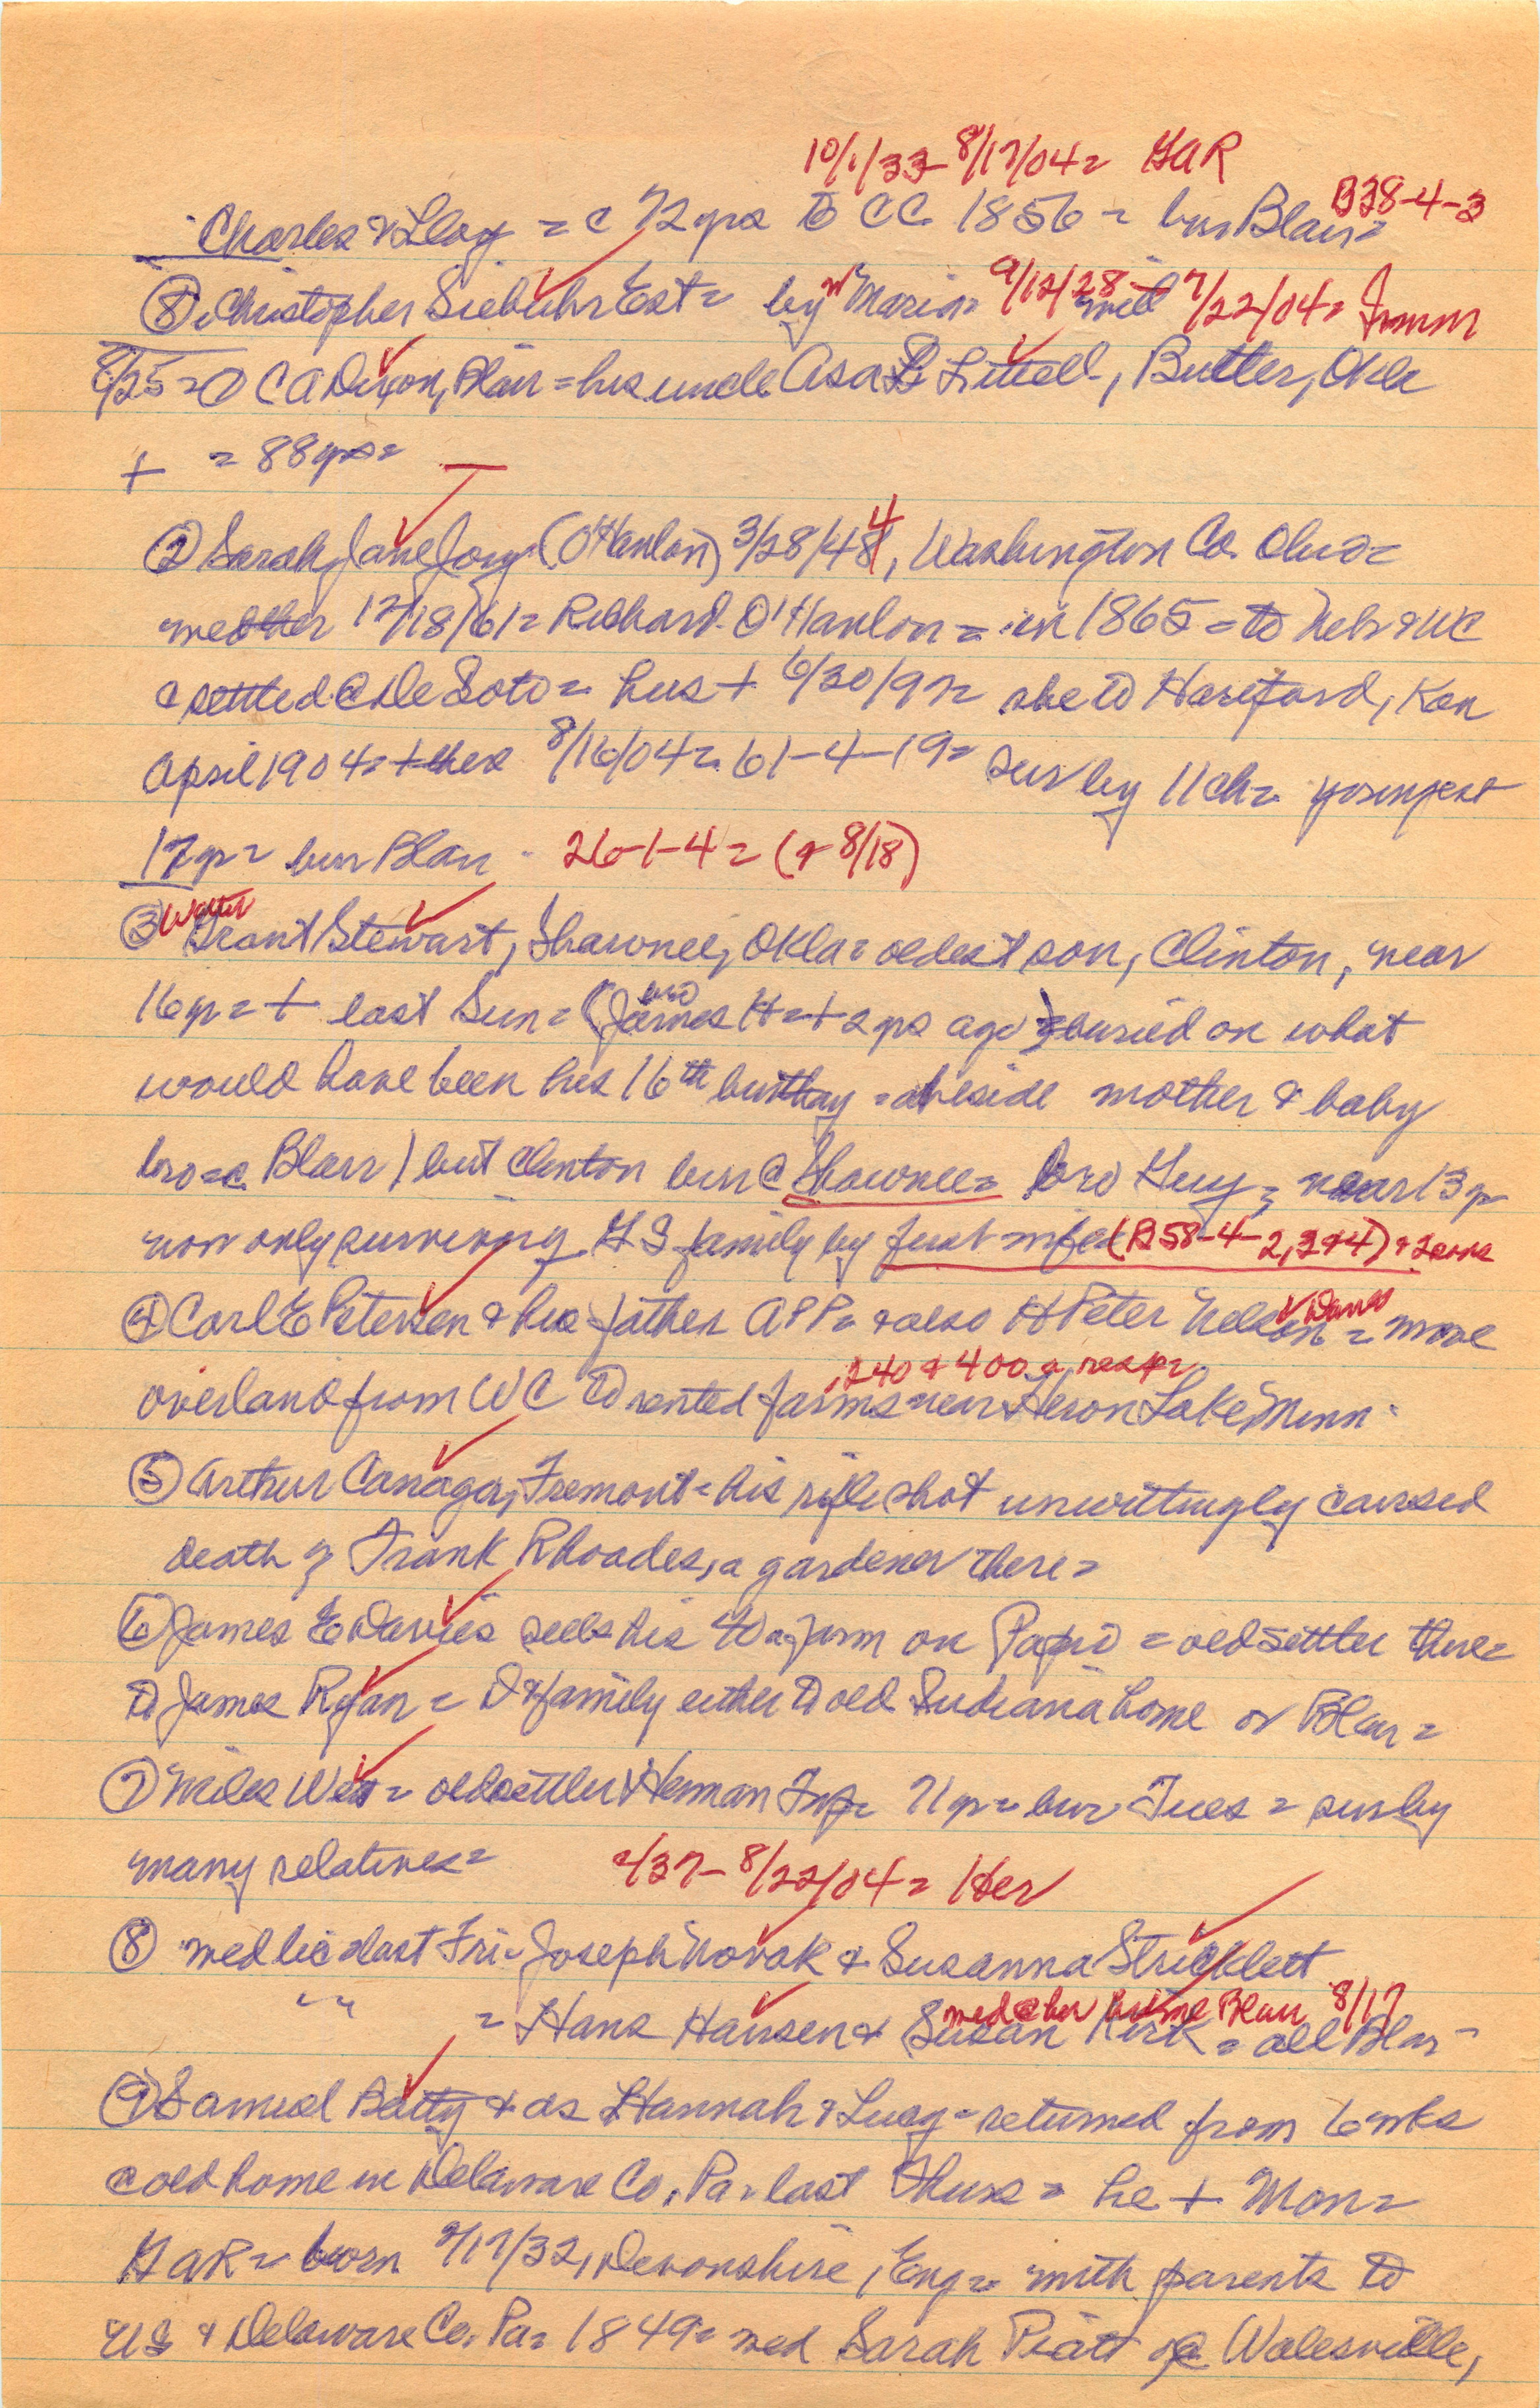 10/1/33-8/17/04= GAR
Charles & Lloy = c 72 yrs to CC 1856 = bur Blair= B38-4-3
⑧ Christopher Siebuhr Est= by w Maria= 9/12/28 - will 7/22/04= Fmm
8/25 = C A Dixon, Blair = his uncle Asa L Littell, Butler, Okla
+ = 88 yrs=
② Sarah Jane Joy (O'Hanlon) 3/28/48 4, Washington Co. Ohio=
med ther 12/18/61= Richard O'Hanlon = in 1865 = to Neb & WC
& settled @ De Soto = hus + 6/30/97= she to Hartford, Kan
April 1904= + there 8/16/04= 61-4-19= sur by 11 ch= youngest
17 yr= bur Blair - 26-1-4= (+ 8/18)
③ Walter Grant Stewart, Shawnee, Okla= oldest son, Clinton, near
16 yr= + last Sun= (bro James H= + 2 yrs ago = buried on what
would have been his 16th birthday = beside mother & baby
bro= @ Blair) but Clinton bur @ Shawnee= bro Guy = near 13 yr
now only surviving GS family by first wife (B58-4-2,3&4) & 2 sons
④ Carl E Petersen & his father APP= & also H Peter Nelson = move
overland from WC to rented farms near Heron Lake, Minn-
240 & 400 a, resp=
⑤ Arthur Canaga, Fremont= his rifle shot unwittingly caused
death of Frank Rhoades, a gardener there=
⑥ James E Davies sells his 40 a farm on Papio = old settler there=
to James Ryan = D & family either to old Indiana home or Blair=
⑦ Miles West= old settler Herman Twp= 71 yr= bur Tues = sur by
many relatives= 2/37-8/22/04= Her
⑧ med lic = last Fri= Joseph Novak & Susanna Stricklett
" " = Hans Hansen & Susan Kirk= all Blair-
med @ her home Blair 8/17
⑨ Samuel Batty & ds Hannah & Lucy= returned from 6 wks
@ old home in Delaware Co, Pa= last Thurs = he + Mon=
GAR= born 2/17/32, Devonshire, Eng= with parents to
US & Delaware Co. Pa= 1849= med Sarah Piatt of Walesville,